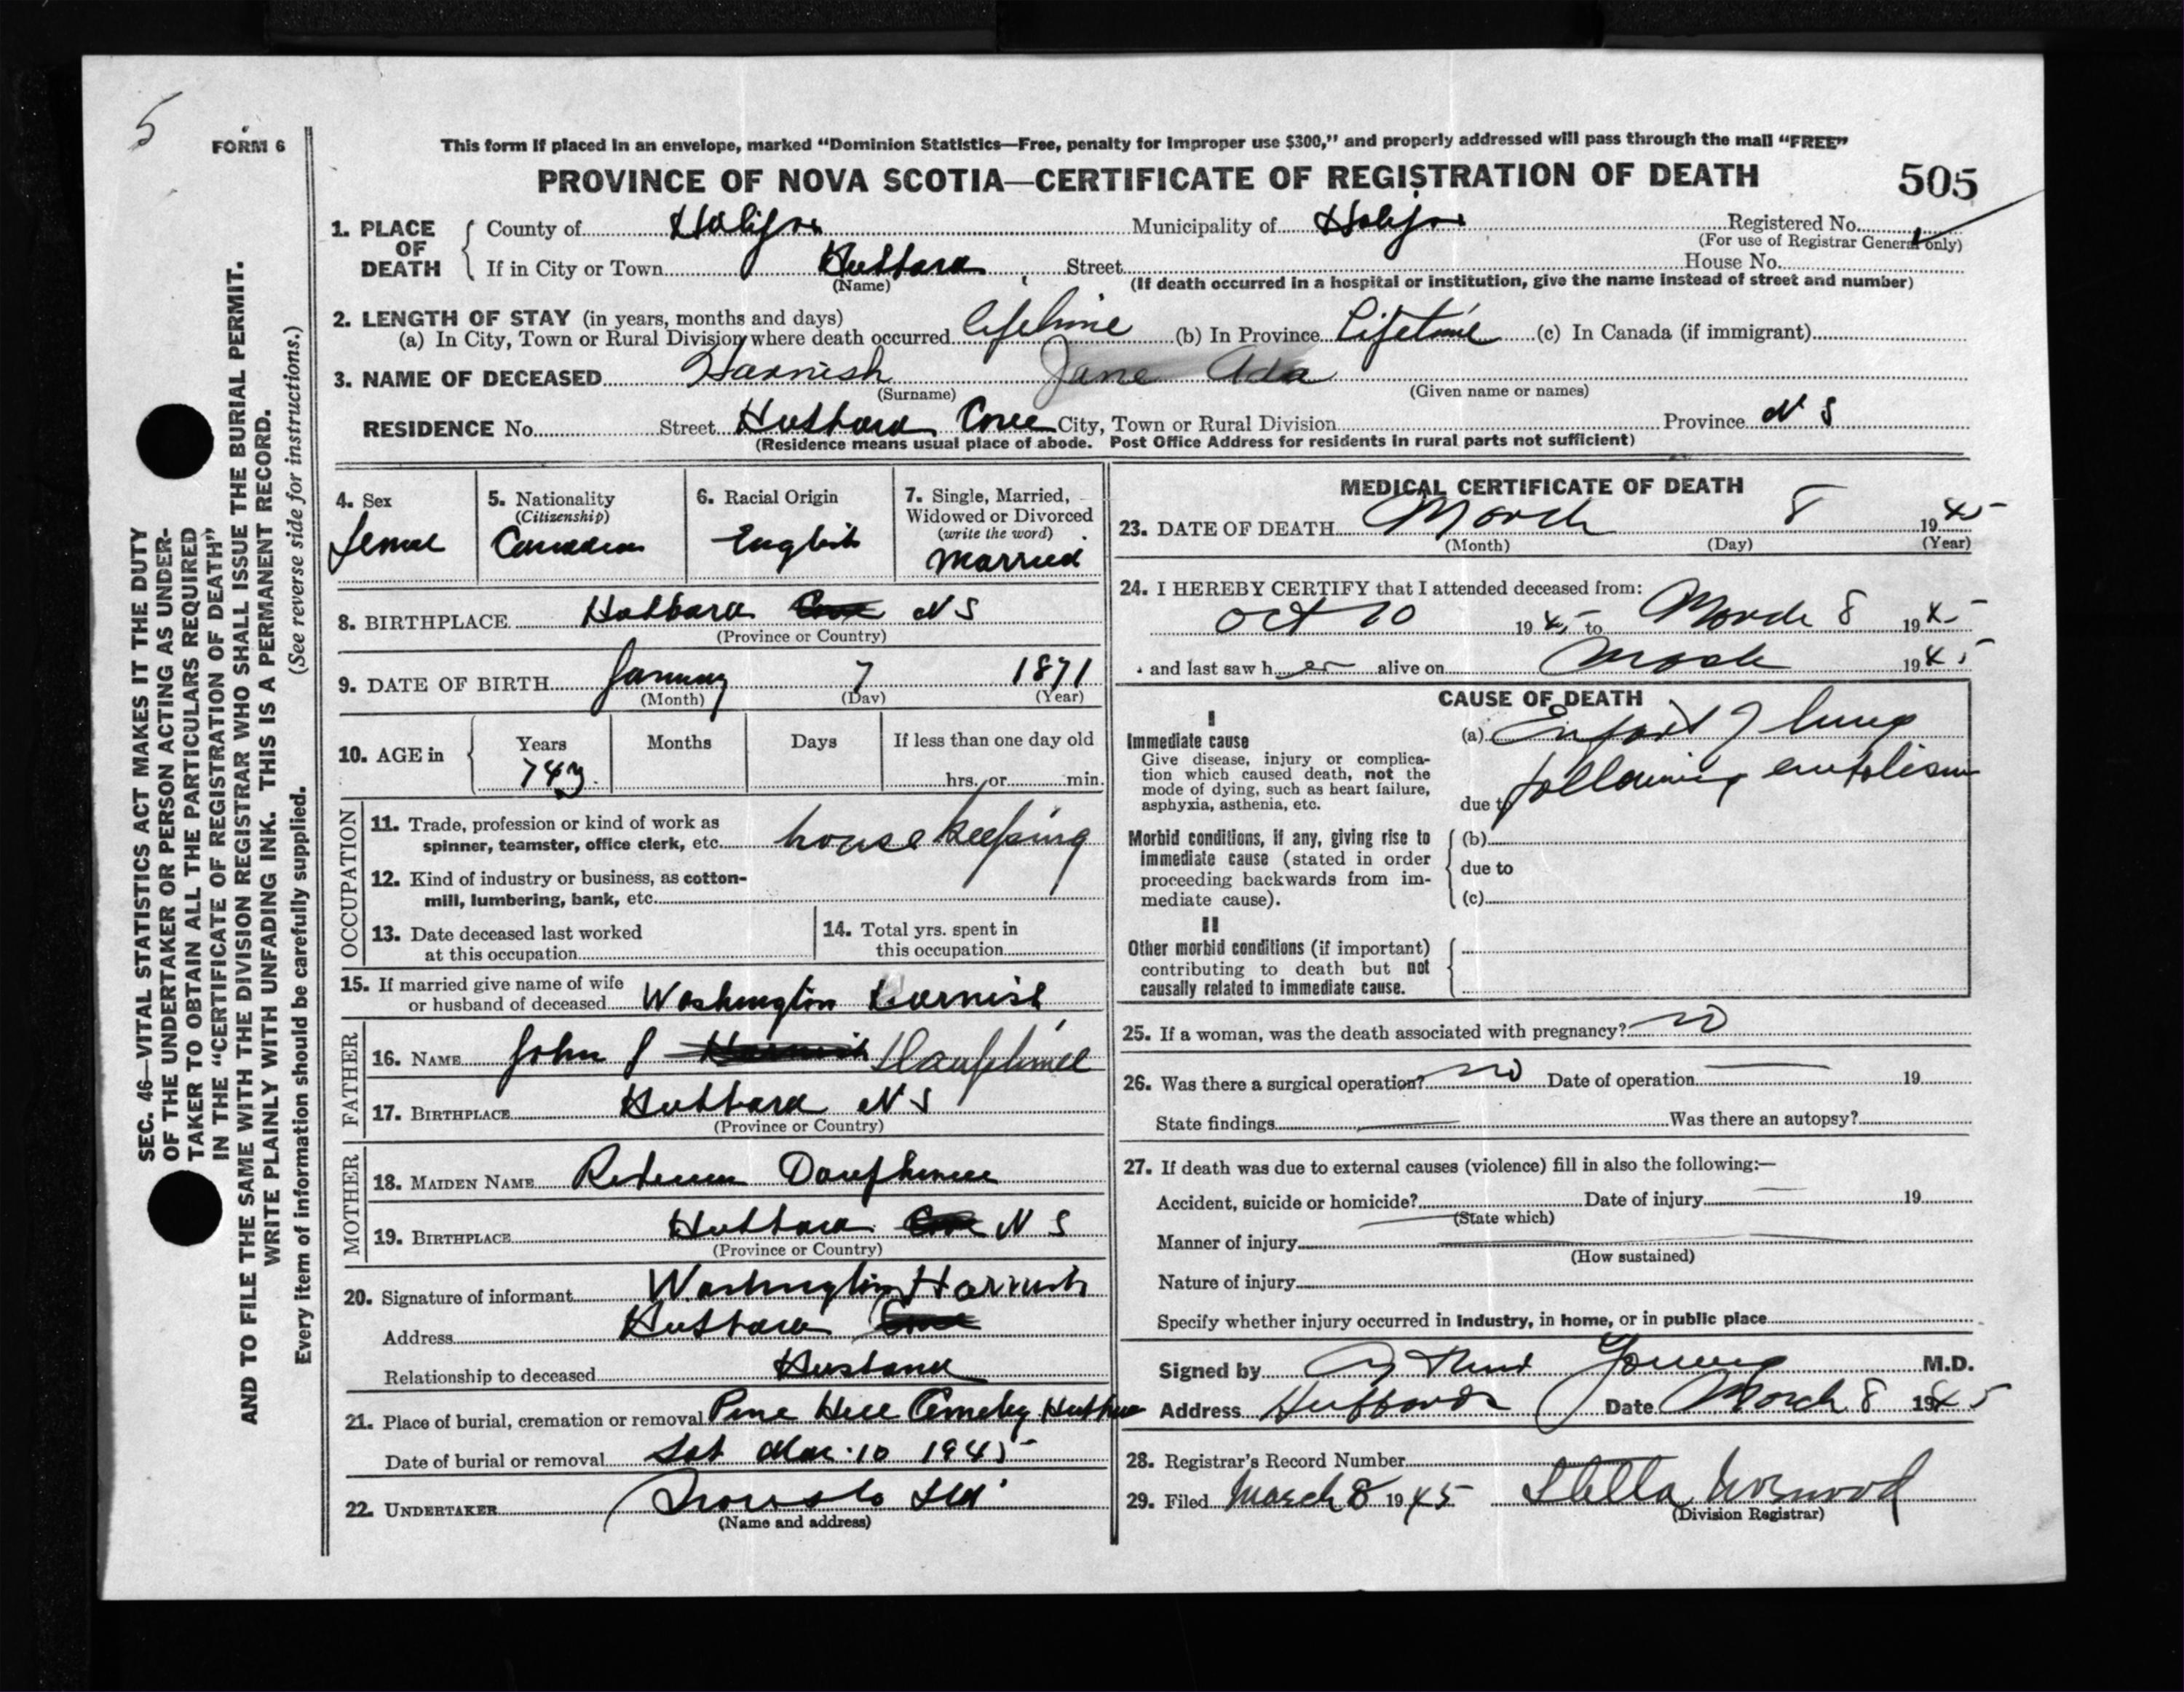 5
FORM 6
This form if placed in an envelope, marked “Dominion Statistics—Free, penalty for improper use $300,” and properly addressed will pass through the mail “FREE”
PROVINCE OF NOVA SCOTIA—CERTIFICATE OF REGISTRATION OF DEATH
505
1. PLACE OF DEATH
County of Halifax Municipality of Halifax Registered No.
(For use of Registrar General only)
If in City or Town Hubbard Street House No.
(Name) (If death occurred in a hospital or institution, give the name instead of street and number)
2. LENGTH OF STAY (in years, months and days)
(a) In City, Town or Rural Division where death occurred lifetime (b) In Province Lifetime (c) In Canada (if immigrant)
3. NAME OF DECEASED Harnish Jane Ada
(Surname) (Given name or names)
RESIDENCE No. Street Hubbard Cove City, Town or Rural Division Province N S
(Residence means usual place of abode. Post Office Address for residents in rural parts not sufficient)
4. Sex
Female
5. Nationality
(Citizenship)
Canadian
6. Racial Origin
English
7. Single, Married,
Widowed or Divorced
(write the word)
Married
8. BIRTHPLACE Hubbard Cove N S
(Province or Country)
9. DATE OF BIRTH January 7 1871
(Month) (Day) (Year)
10. AGE in
Years Months Days If less than one day old
74 hrs. or min.
OCCUPATION
11. Trade, profession or kind of work as
spinner, teamster, office clerk, etc. house keeping
12. Kind of industry or business, as cotton-
mill, lumbering, bank, etc.
13. Date deceased last worked
at this occupation
14. Total yrs. spent in
this occupation
15. If married give name of wife
or husband of deceased Washington Harnish
FATHER
16. NAME John J Harnish Dauphinee
17. BIRTHPLACE Hubbard N S
(Province or Country)
MOTHER
18. MAIDEN NAME Dauphinee
19. BIRTHPLACE Hubbard Cove N S
(Province or Country)
20. Signature of informant Washington Harnish
Address Hubbard Cove
Relationship to deceased Husband
21. Place of burial, cremation or removal Pine Hill Cemetery
Date of burial or removal Sat Mar. 10 1945
22. UNDERTAKER Ltd
(Name and address)
MEDICAL CERTIFICATE OF DEATH
23. DATE OF DEATH March 8 1945
(Month) (Day) (Year)
24. I HEREBY CERTIFY that I attended deceased from:
Oct 1945 to March 8 1945
and last saw h er alive on March 1945
CAUSE OF DEATH
I
Immediate cause
Give disease, injury or complica-
tion which caused death, not the
mode of dying, such as heart failure,
asphyxia, asthenia, etc.
(a) Infarct of lung
due to following embolism
Morbid conditions, if any, giving rise to
immediate cause (stated in order
proceeding backwards from im-
mediate cause).
(b)
due to
(c)
II
Other morbid conditions (if important)
contributing to death but not
causally related to immediate cause.
25. If a woman, was the death associated with pregnancy? no
26. Was there a surgical operation? no Date of operation 19
State findings Was there an autopsy?
27. If death was due to external causes (violence) fill in also the following:—
Accident, suicide or homicide? Date of injury 19
(State which)
Manner of injury
(How sustained)
Nature of injury
Specify whether injury occurred in industry, in home, or in public place
Signed by Young M.D.
Address Hubbards Date March 8 1945
28. Registrar's Record Number
29. Filed March 8 1945 Stella Norwood
(Division Registrar)
SEC. 46—VITAL STATISTICS ACT MAKES IT THE DUTY
OF THE UNDERTAKER OR PERSON ACTING AS UNDER-
TAKER TO OBTAIN ALL THE PARTICULARS REQUIRED
IN THE “CERTIFICATE OF REGISTRATION OF DEATH”
AND TO FILE THE SAME WITH THE DIVISION REGISTRAR WHO SHALL ISSUE THE BURIAL PERMIT.
WRITE PLAINLY WITH UNFADING INK. THIS IS A PERMANENT RECORD.
Every item of information should be carefully supplied. (See reverse side for instructions.)